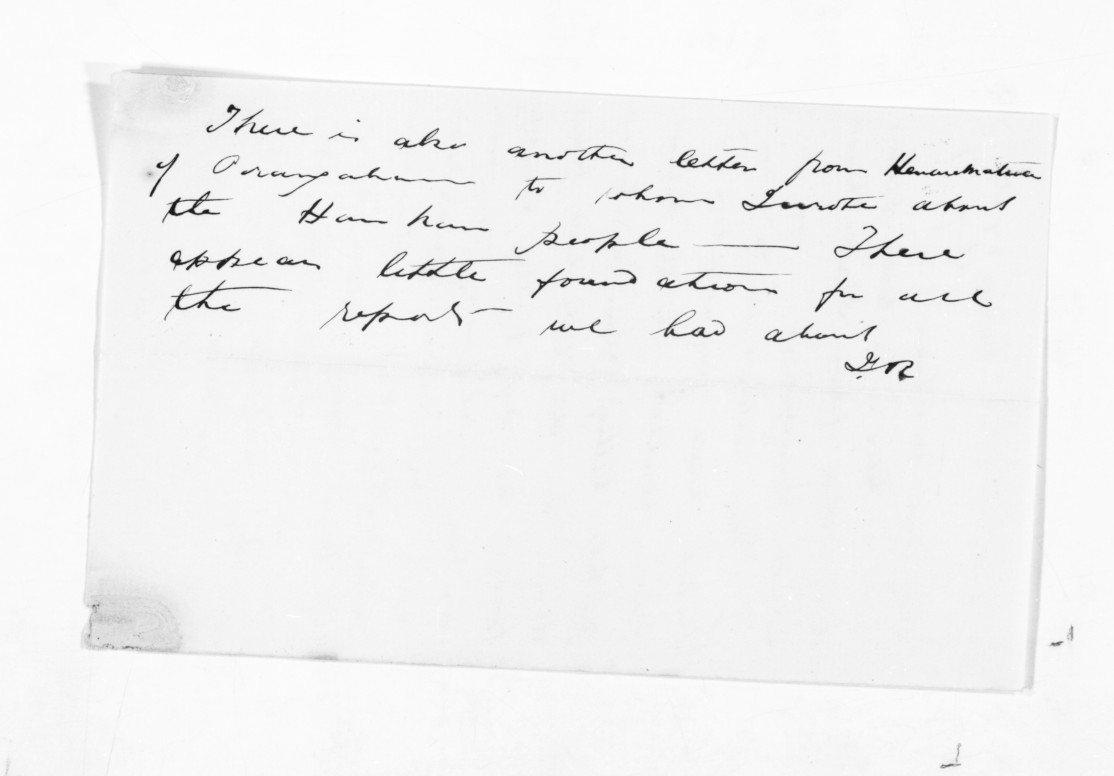 There is also another letter from Henare Matua
of Porangahau to whom I wrote about
the Hau hau people — There
appears little foundation for all
the reports we had about